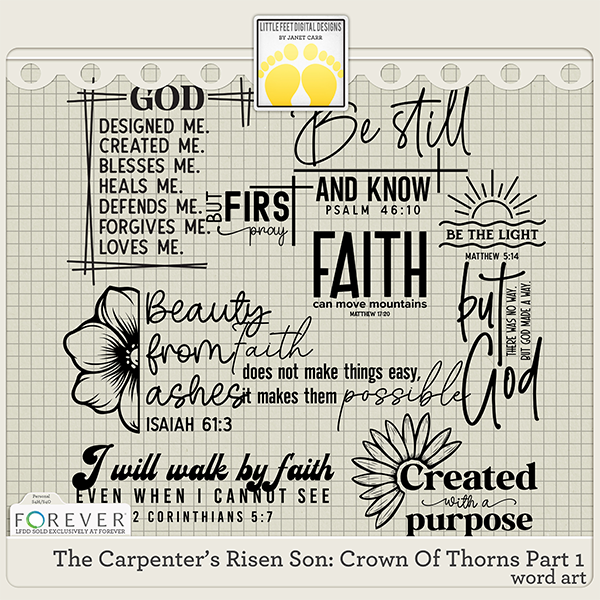 LITTLE FEET DIGITAL DESIGNS
BY JANET CARR
GOD
DESIGNED ME.
CREATED ME.
BLESSES ME.
HEALS ME.
DEFENDS ME.
FORGIVES ME.
LOVES ME.
BUT
FIRST
pray
Be still
AND KNOW
PSALM 46:10
BE THE LIGHT
MATTHEW 5:14
FAITH
can move mountains
MATTHEW 17:20
but
God
THERE WAS NO WAY.
BUT GOD MADE A WAY.
Beauty
from
ashes
ISAIAH 61:3
faith
does not make things easy,
it makes them possible
I will walk by faith
EVEN WHEN I CANNOT SEE
2 CORINTHIANS 5:7
Created
with a
purpose
Personal
S4H/S4O
FOREVER
LFDD SOLD EXCLUSIVELY AT FOREVER
The Carpenter's Risen Son: Crown Of Thorns Part 1
word art